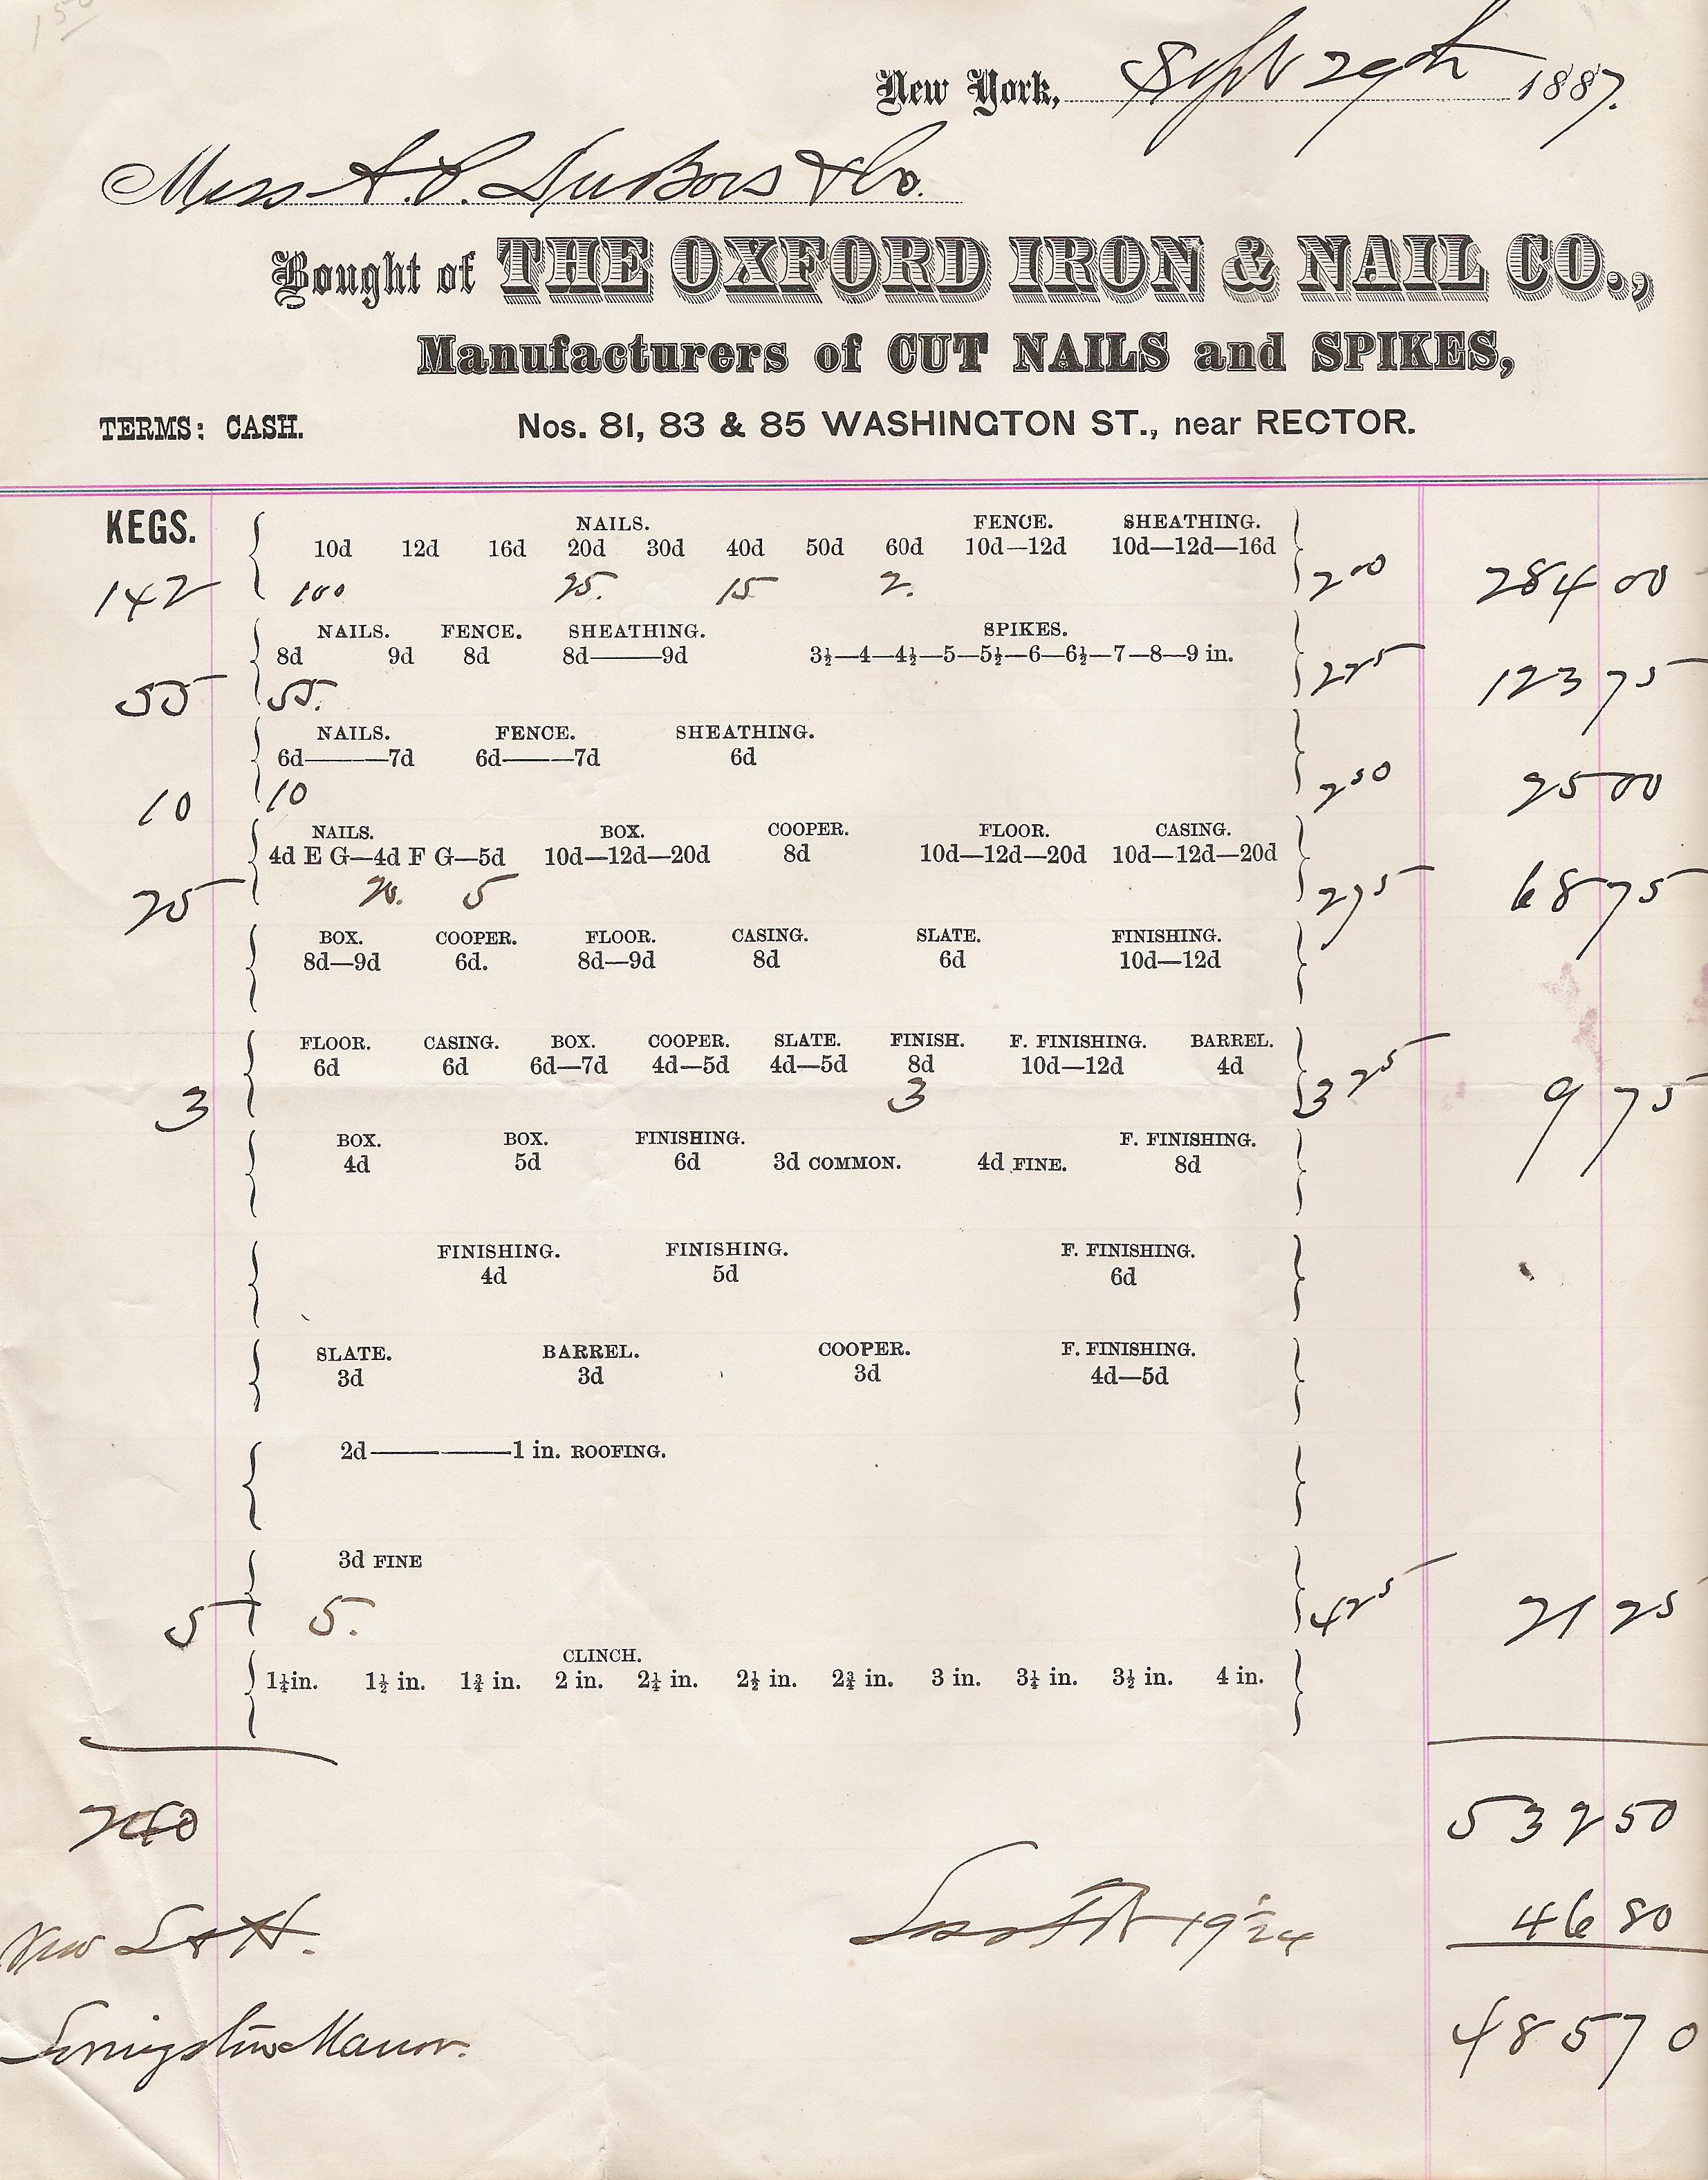 New York, Sept 29th 1887.
Mess A. P. DuBois & Co.
Bought of THE OXFORD IRON & NAIL CO.,
Manufacturers of CUT NAILS and SPIKES,
TERMS: CASH. Nos. 81, 83 & 85 WASHINGTON ST., near RECTOR.
KEGS. NAILS. FENCE. SHEATHING.
10d 12d 16d 20d 30d 40d 50d 60d 10d—12d 10d—12d—16d
142 100 25. 15 2. 2 00 284 00
NAILS. FENCE. SHEATHING. SPIKES.
8d 9d 8d 8d——9d 3½—4—4½—5—5½—6—6½—7—8—9 in.
55 55. 2 25 123 75
NAILS. FENCE. SHEATHING.
6d———7d 6d———7d 6d
10 10 2 50 25 00
NAILS. BOX. COOPER. FLOOR. CASING.
4d E G—4d F G—5d 10d—12d—20d 8d 10d—12d—20d 10d—12d—20d
25 20. 5 2 75 68 75
BOX. COOPER. FLOOR. CASING. SLATE. FINISHING.
8d—9d 6d. 8d—9d 8d 6d 10d—12d
FLOOR. CASING. BOX. COOPER. SLATE. FINISH. F. FINISHING. BARREL.
6d 6d 6d—7d 4d—5d 4d—5d 8d 10d—12d 4d
3 3 3 25 9 75
BOX. BOX. FINISHING. F. FINISHING.
4d 5d 6d 3d COMMON. 4d FINE. 8d
FINISHING. FINISHING. F. FINISHING.
4d 5d 6d
SLATE. BARREL. COOPER. F. FINISHING.
3d 3d 3d 4d—5d
2d—————1 in. ROOFING.
3d FINE
5 5. 4 25 21 25
CLINCH.
1¼in. 1½ in. 1¾ in. 2 in. 2¼ in. 2½ in. 2¾ in. 3 in. 3¼ in. 3½ in. 4 in.
240 532 50
46 80
Livingston Manor. 485 70